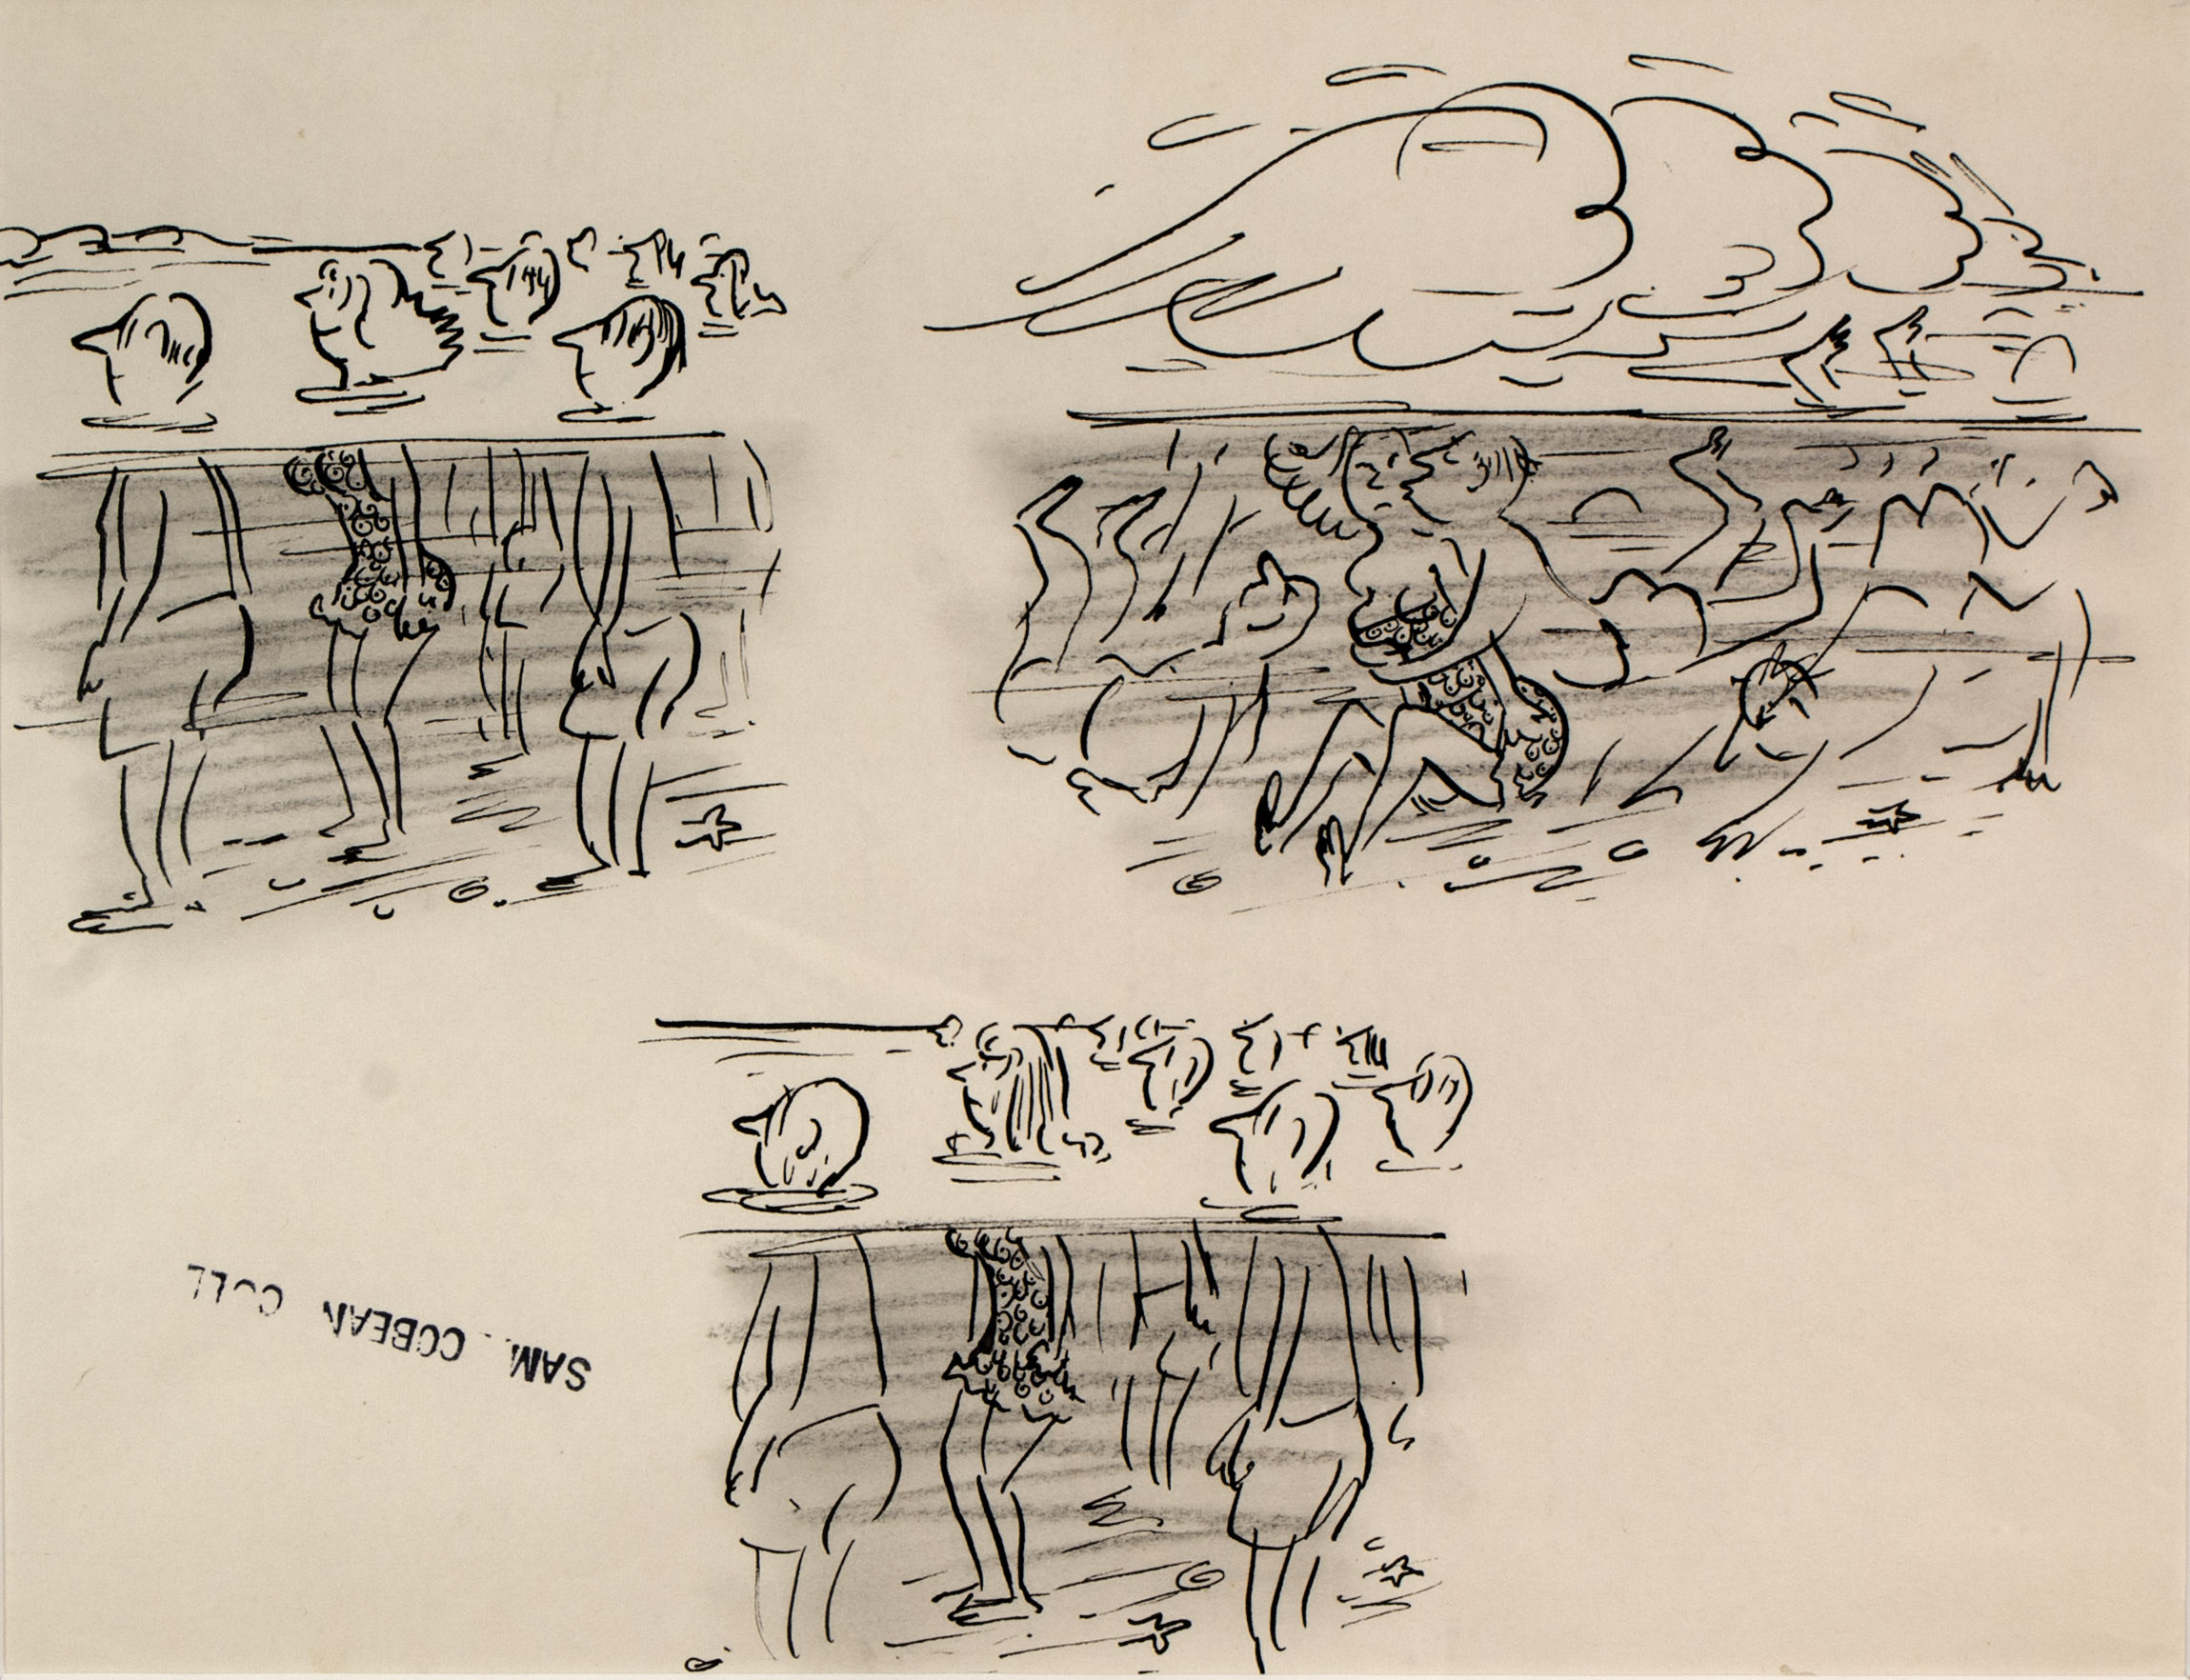 SAM. COBEAN COLL